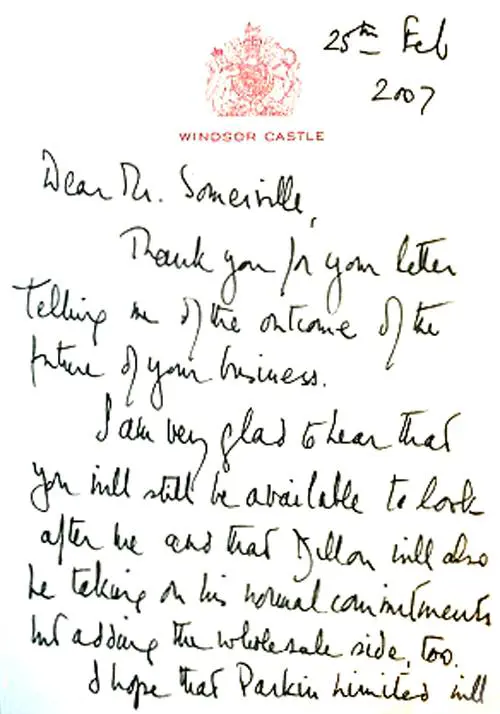 25th Feb
2007
WINDSOR CASTLE
Dear Mr. Somerville,
Thank you for your letter
telling me of the outcome of the
future of your business.
I am very glad to hear that
you will still be available to look
after me and that Dillon will also
be taking on his normal commitments
but adding the wholesale side, too.
I hope that Parkin Limited will